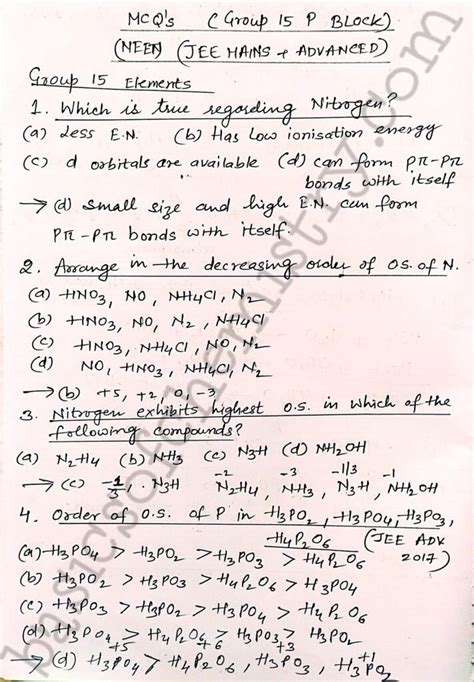 MCQ's (Group 15 P Block)
(NEET) (JEE MAINS + ADVANCED)
Group 15 Elements
1. Which is true regarding Nitrogen?
(a) Less E.N. (b) Has Low ionisation energy
(c) d orbitals are available (d) can form pπ-pπ
bonds with itself
→ (d) small size and high E.N. can form
pπ-pπ bonds with itself.
2. Arrange in the decreasing order of O.S. of N.
(a) HNO3, NO, NH4Cl, N2
(b) HNO3, NO, N2, NH4Cl
(c) HNO3, NH4Cl, NO, N2
(d) NO, HNO3, NH4Cl, N2
→ (b) +5, +2, 0, -3
3. Nitrogen exhibits highest O.S. in which of the
following compounds?
(a) N2H4 (b) NH3 (c) N3H (d) NH2OH
→ (c) -1/3, N3H -2 N2H4, -3 NH3, -1/3 N3H, -1 NH2OH
4. Order of O.S. of P in H3PO2, H3PO4, H3PO3,
H4P2O6 (JEE ADV. 2017)
(a) H3PO4 > H3PO2 > H3PO3 > H4P2O6
(b) H3PO2 > H3PO3 > H4P2O6 > H3PO4
(c) H3PO3 > H3PO2 > H3PO4 > H4P2O6
(d) H3PO4 > H4P2O6 > H3PO3 > H3PO2
+5 +6 +3 +1
→ (d) H3PO4 > H4P2O6, H3PO3, H3PO2
basicsofchemistry.com